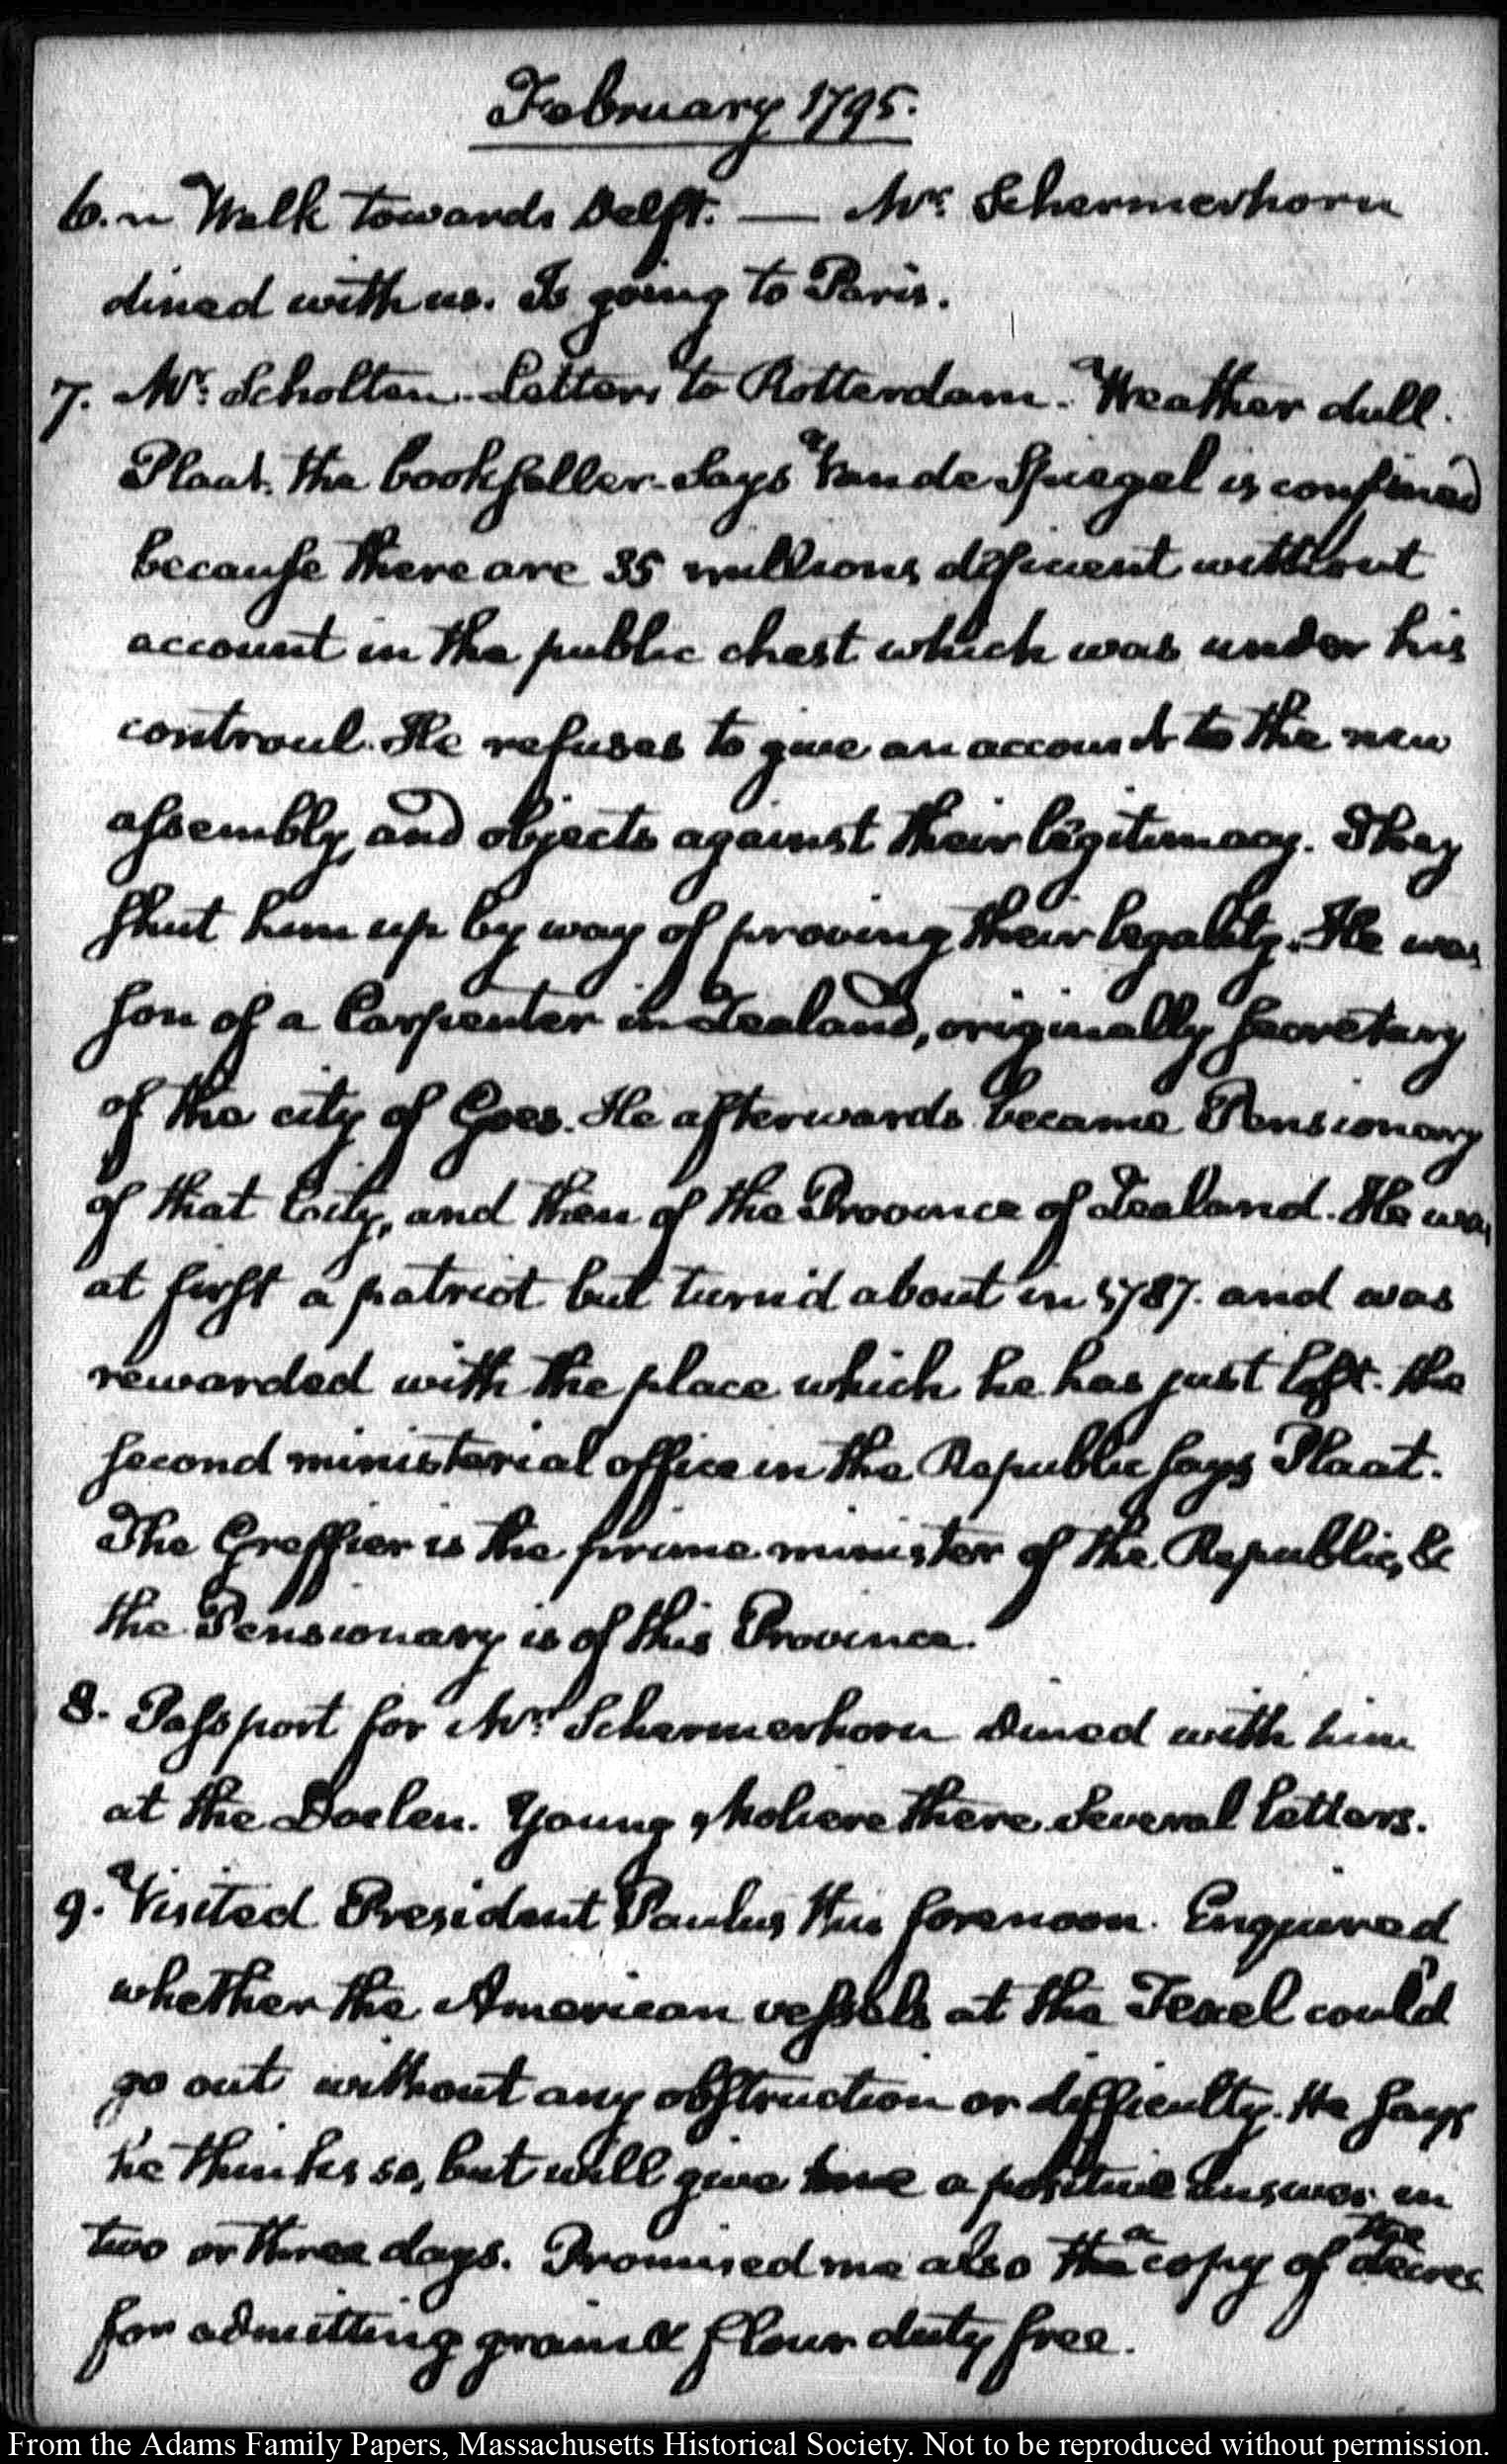 February 1795.
6. Walk towards Delft. — Mr. Schermerhorn
dined with us. Is going to Paris.
7. Mr. Scholten. Letters to Rotterdam. Weather dull.
Plaat. the bookseller. Says Vande Spiegel is confined
because there are 35 millions deficient without
account in the public chest which was under his
controul. He refuses to give an account to the new
assembly, and objects against their legitimacy. They
shut him up by way of proving their legality. He was
son of a Carpenter in Zealand, originally Secretary
of the city of Goes. He afterwards became Pensionary
of that City, and then of the Province of Zealand. He was
at first a patriot but turn'd about in 1787. and was
rewarded with the place which he has just left. the
second ministerial office in the Republic says Plaat.
The Greffier is the prime minister of the Republic, &
the Pensionary is of this Province.
8. Passport for Mr. Schermerhorn Dined with him
at the Doelen. Young Moliere there. Several letters.
9. Visited President Paulus this forenoon. Enquired
whether the American vessels at the Texel could
go out without any obstruction or difficulty. He says
he thinks so, but will give me a positive answer in
two or three days. Promised me also the a copy of the decree
for admitting grain & flour duty free.
From the Adams Family Papers, Massachusetts Historical Society. Not to be reproduced without permission.